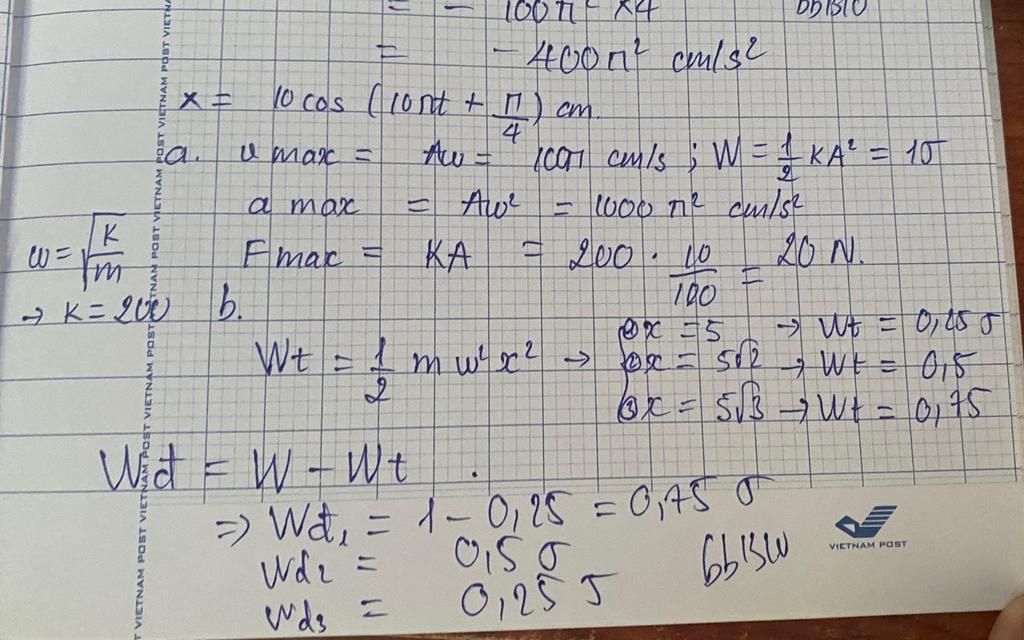 = - 100π² x4
= - 400π² cm/s²
x = 10 cos (10πt + π/4) cm.
a. v max = Aω = 100π cm/s ; W = 1/2 KA² = 1J
a max = Aω² = 1000 π² cm/s²
ω = √(K/m)
F max = KA = 200 . 10/100 = 20 N.
→ K = 200
b.
Wt = 1/2 m ω² x² →
① x = 5 → Wt = 0,25 J
② x = 5√2 → Wt = 0,5
③ x = 5√3 → Wt = 0,75
Wd = W - Wt .
=> Wd₁ = 1 - 0,25 = 0,75 J
Wd₂ = 0,5 J
Wd₃ = 0,25 J
VIETNAM POST
VIETNAM POST VIETNAM POST VIETNAM POST VIETNAM POST VIETNAM POST VIETNAM POST